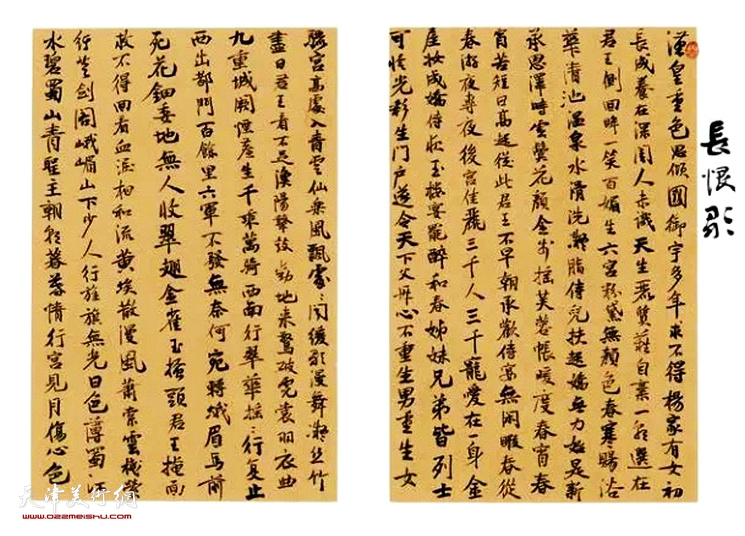 長恨歌
漢皇重色思傾國御宇多年求不得楊家有女初
長成養在深閨人未識天生麗質難自棄一朝選在
君王側回眸一笑百媚生六宮粉黛無顏色春寒賜浴
華清池溫泉水滑洗凝脂侍兒扶起嬌無力始是新
承恩澤時雲鬢花顏金步搖芙蓉帳暖度春宵春
宵苦短日高起從此君王不早朝承歡侍宴無閑暇春從
春游夜專夜後宮佳麗三千人三千寵愛在一身金
屋妝成嬌侍夜玉樓宴罷醉和春姊妹兄弟皆列士
可憐光彩生門戶遂令天下父母心不重生男重生女
驪宮高處入青雲仙樂風飄處〻聞緩歌漫舞凝絲竹
盡日君王看不足漁陽鼙鼓動地來驚破霓裳羽衣曲
九重城闕煙塵生千乘萬騎西南行翠華搖〻行復止
西出都門百餘里六軍不發無奈何宛轉蛾眉馬前
死花鈿委地無人收翠翹金雀玉搔頭君王掩面
救不得回看血淚相和流黃埃散漫風蕭索雲棧縈
行登劍閣峨嵋山下少人行旌旗無光日色薄蜀江
水碧蜀山青聖主朝〻暮〻情行宮見月傷心色
天津美术網
www.022meishu.com